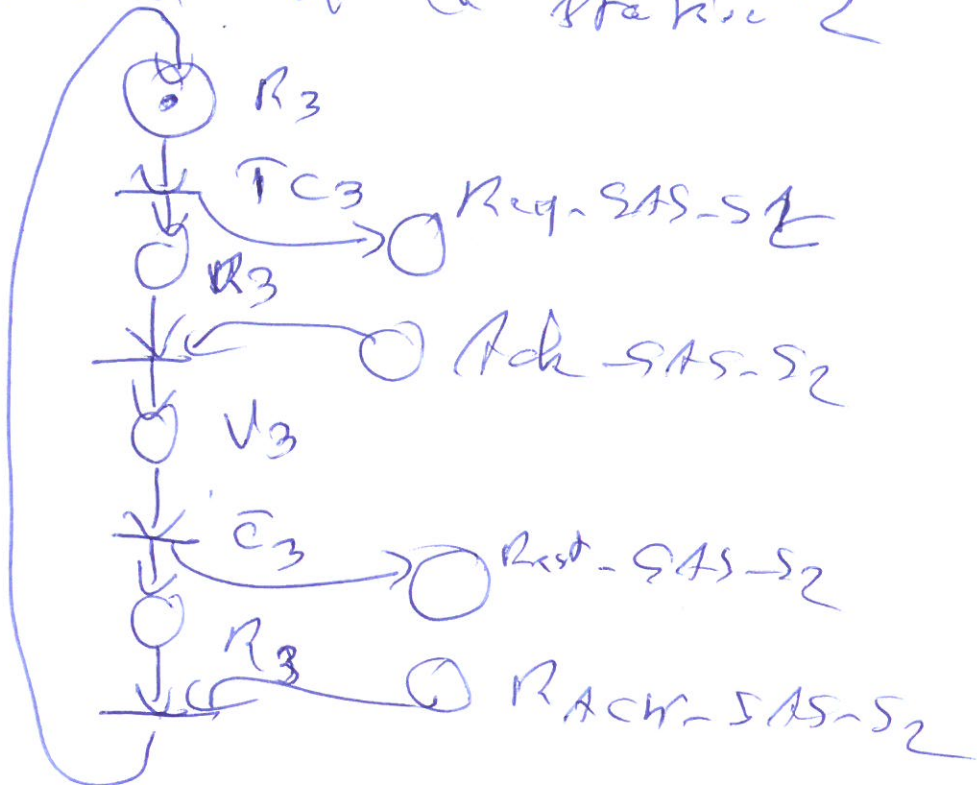 station 2
R3
TC3 Req-SAS-S2
R3
Ack-SAS-S2
V3
C3 Rest-SAS-S2
R3 RACK-SAS-S2